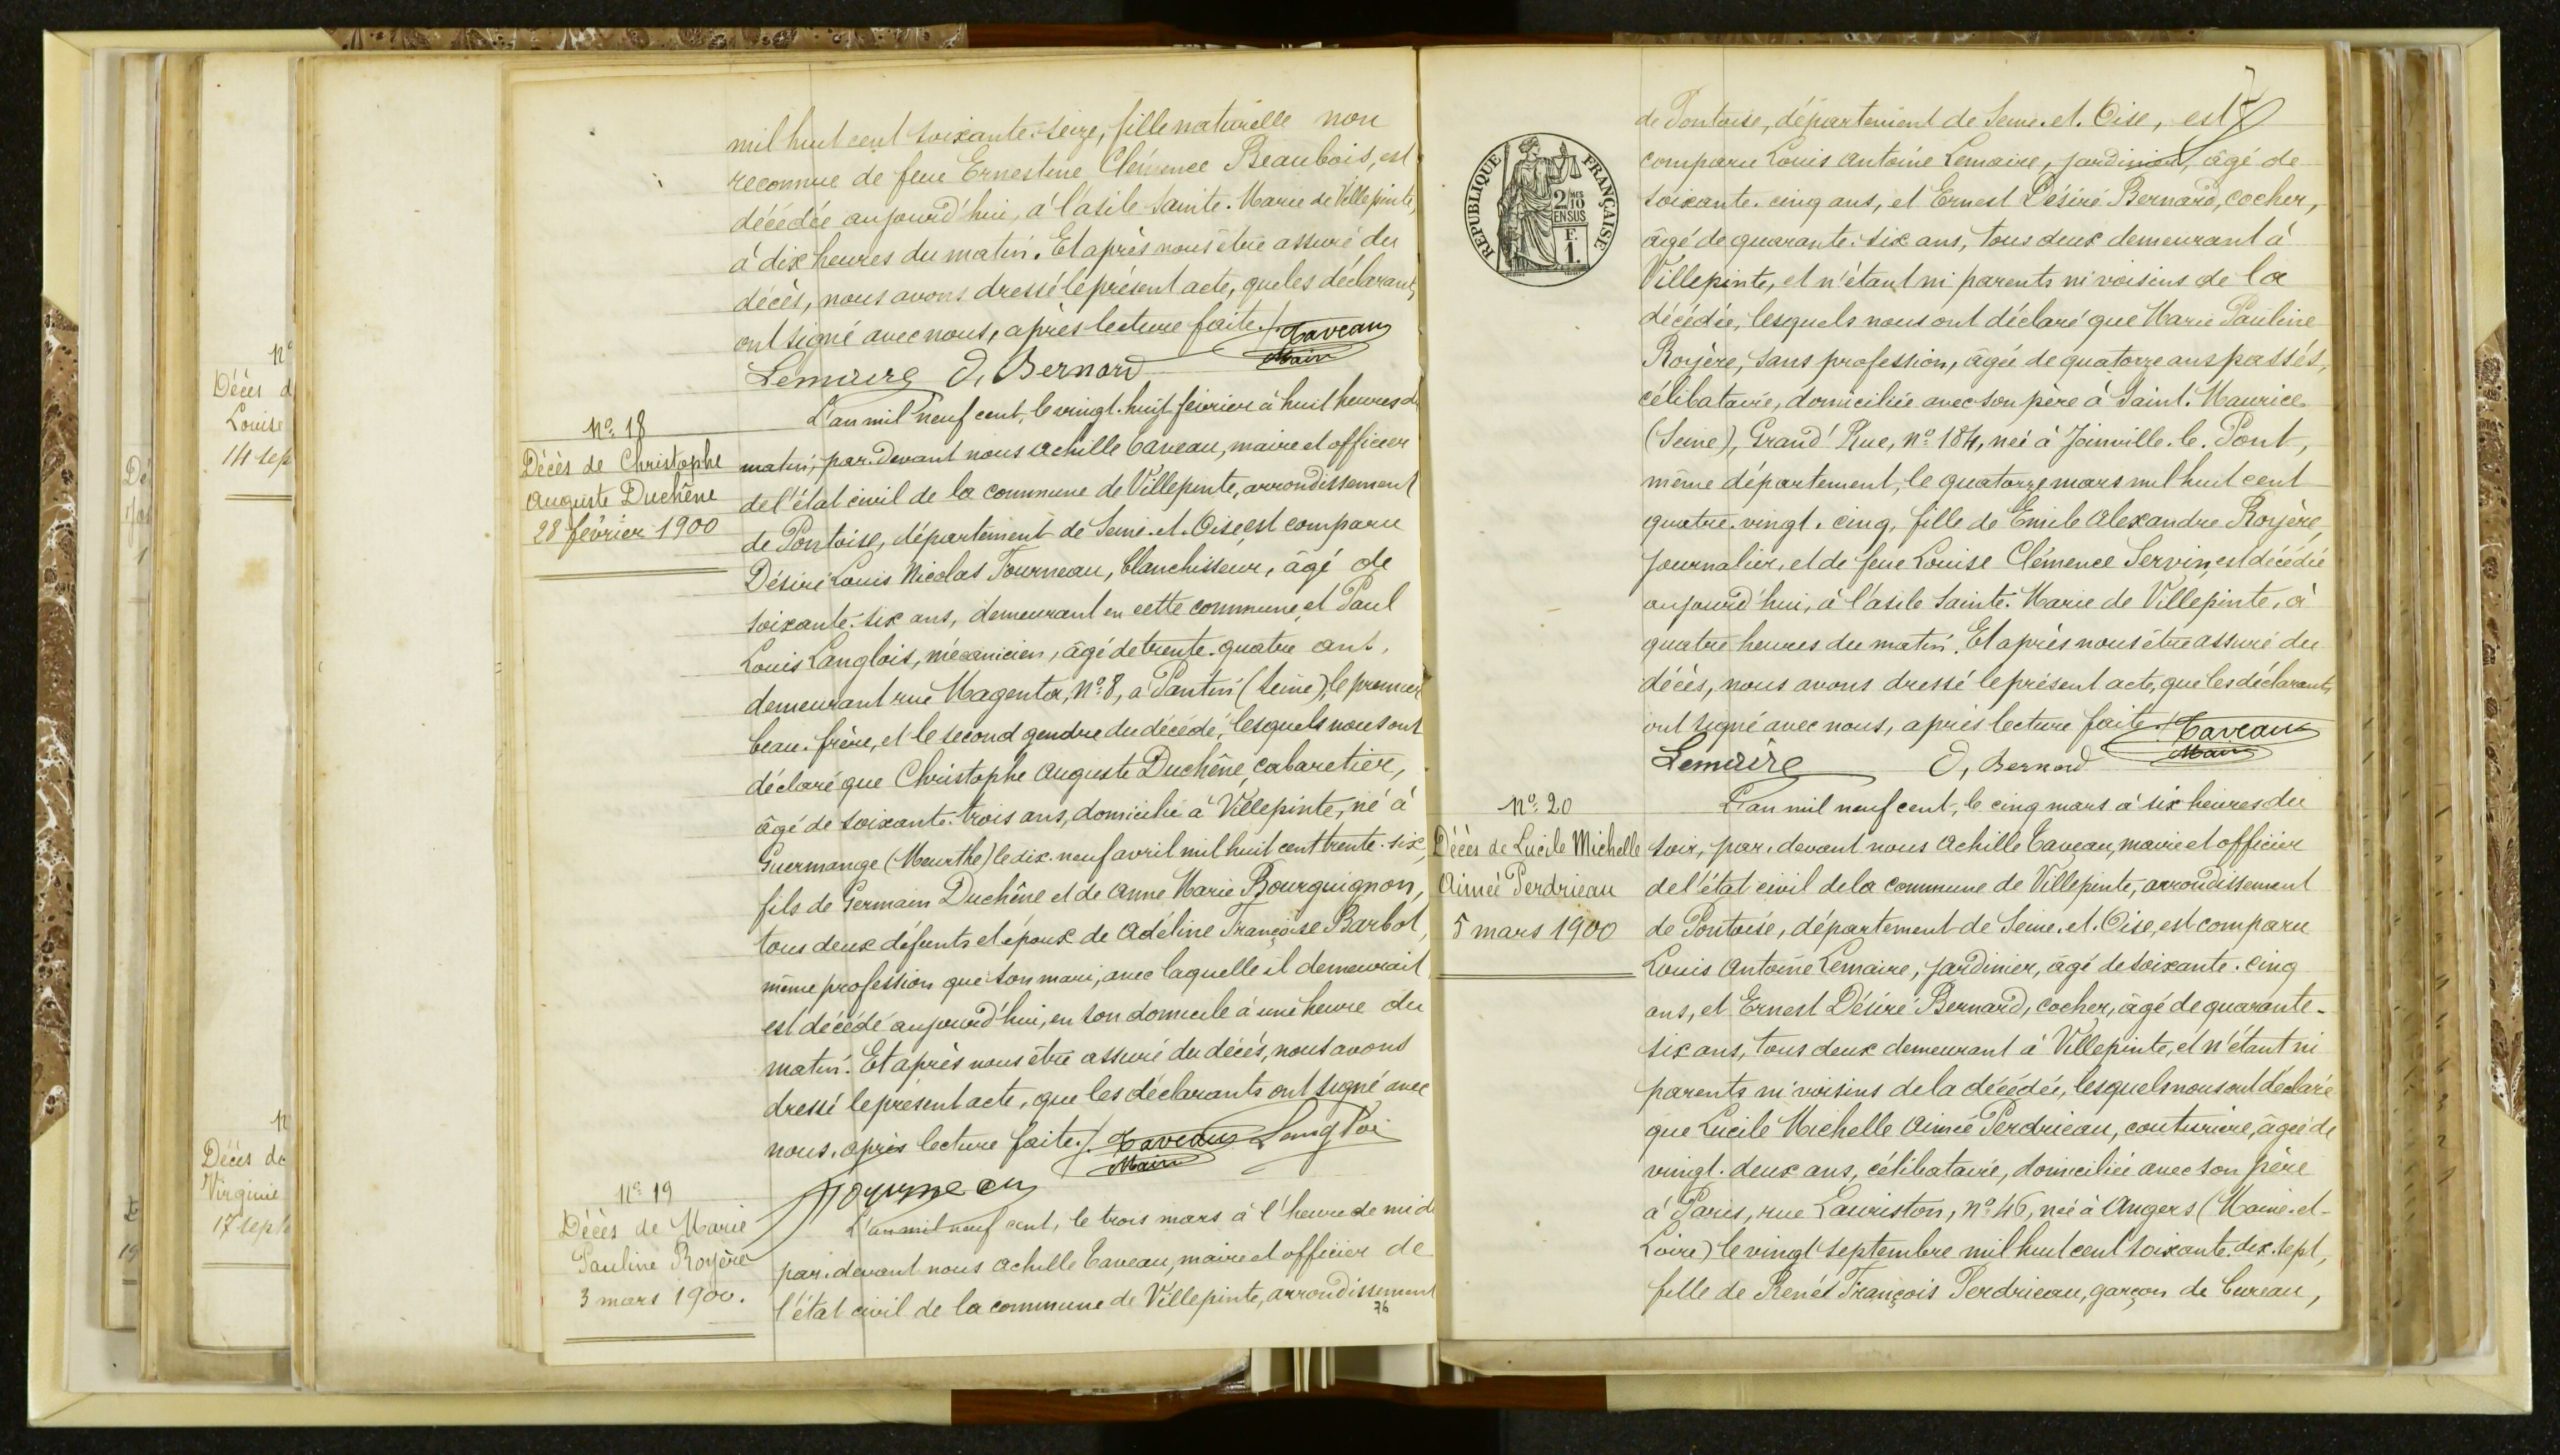 mil huit cent soixante-seize, fille naturelle non
reconnue de feue Ernestine Clémence Beaubois, est
décédée aujourd'hui, à l'asile Sainte-Marie de Villepinte,
à dix heures du matin. Et après nous être assuré du
décès, nous avons dressé le présent acte, que les déclarants
ont signé avec nous, après lecture faite./. Caveau
Maire
Lemaire D, Bernard
No. 18
Décès de Christophe
Auguste Duchêne
28 février 1900
L'an mil neuf cent, le vingt-huit février à huit heures du
matin, par-devant nous Achille Caveau, maire et officier
de l'état civil de la commune de Villepinte, arrondissement
de Pontoise, département de Seine-et-Oise, est comparu
Désiré Louis Nicolas Fourneau, blanchisseur, âgé de
soixante-six ans, demeurant en cette commune, et Paul
Louis Langlois, mécanicien, âgé de trente-quatre ans,
demeurant rue Magenta, No. 8, à Pantin (Seine), le premier
beau-frère, et le second gendre du décédé, lesquels nous ont
déclaré que Christophe Auguste Duchêne, cabaretier,
âgé de soixante-trois ans, domicilié à Villepinte, né à
Guermange (Meurthe) le dix-neuf avril mil huit cent trente-six,
fils de Germain Duchêne et de Anne Marie Bourguignon,
tous deux défunts et époux de Adéline Françoise Barbot,
même profession que son mari, avec laquelle il demeurait,
est décédé aujourd'hui, en son domicile à une heure du
matin. Et après nous être assuré du décès, nous avons
dressé le présent acte, que les déclarants ont signé avec
nous, après lecture faite./. Caveau Langloi
Maire
Fourneau
No. 19
Décès de Marie
Pauline Royère
3 mars 1900.
L'an mil neuf cent, le trois mars à l'heure de midi
par-devant nous Achille Caveau, maire et officier de
l'état civil de la commune de Villepinte, arrondissement
76
No
Décès d
Louise
14 sep
Décès de
Virginie
17 sept
RÉPUBLIQUE FRANÇAISE
2/10
EN SUS
F.
1.
de Pontoise, département de Seine-et-Oise, est
comparu Louis Antoine Lemaire, jardinier, âgé de
soixante-cinq ans, et Ernest Désiré Bernard, cocher,
âgé de quarante-six ans, tous deux demeurant à
Villepinte, et n'étant ni parents ni voisins de la
décédée, lesquels nous ont déclaré que Marie Pauline
Royère, sans profession, âgée de quatorze ans passés,
célibataire, domiciliée avec son père à Saint-Maurice
(Seine), Grand' Rue, No. 184, née à Joinville-le-Pont,
même département, le quatorze mars mil huit cent
quatre-vingt-cinq, fille de Emile Alexandre Royère,
journalier, et de feue Louise Clémence Servin, est décédée
aujourd'hui, à l'asile Sainte-Marie de Villepinte, à
quatre heures du matin. Et après nous être assuré du
décès, nous avons dressé le présent acte, que les déclarants
ont signé avec nous, après lecture faite./. Caveau
Maire
Lemaire D, Bernard
No. 20
Décès de Lucile Michelle
Aimée Perdrieau
5 mars 1900
L'an mil neuf cent, le cinq mars à six heures du
soir, par-devant nous Achille Caveau, maire et officier
de l'état civil de la commune de Villepinte, arrondissement
de Pontoise, département de Seine-et-Oise, est comparu
Louis Antoine Lemaire, jardinier, âgé de soixante-cinq
ans, et Ernest Désiré Bernard, cocher, âgé de quarante-
six ans, tous deux demeurant à Villepinte, et n'étant ni
parents ni voisins de la décédée, lesquels nous ont déclaré
que Lucile Michelle Aimée Perdrieau, couturière, âgée de
vingt-deux ans, célibataire, domiciliée avec son père
à Paris, rue Lauriston, No. 46, née à Angers (Maine-et-
Loire) le vingt septembre mil huit cent soixante-dix-sept,
fille de René François Perdrieau, garçon de bureau,